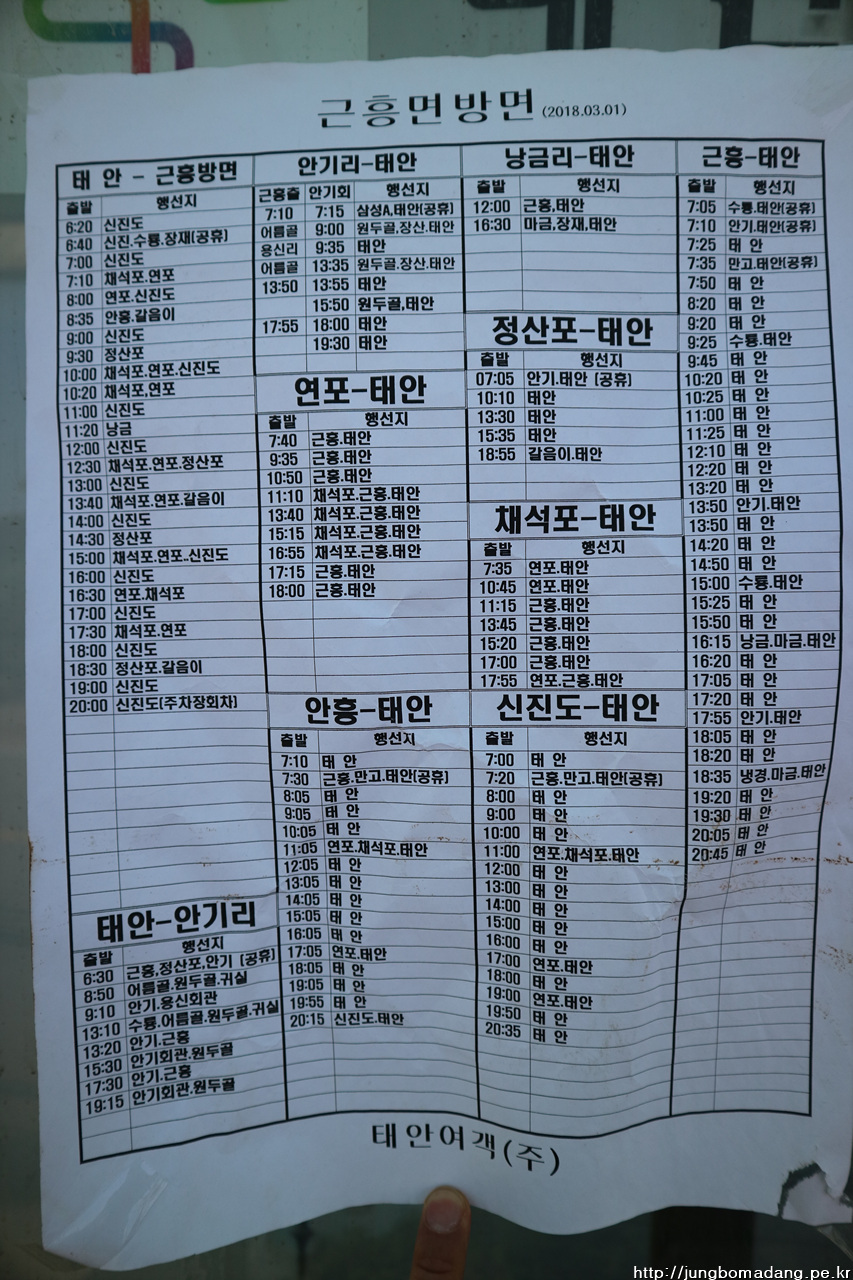 근흥면방면 (2018.03.01)
태 안 - 근흥방면
출발 행선지
6:20 신진도
6:40 신진.수룡.장재(공휴)
7:00 신진도
7:10 채석포.연포
8:00 연포.신진도
8:35 안흥.갈음이
9:00 신진도
9:30 정산포
10:00 채석포.연포.신진도
10:20 채석포,연포
11:00 신진도
11:20 낭금
12:00 신진도
12:30 채석포.연포.정산포
13:00 신진도
13:40 채석포.연포.갈음이
14:00 신진도
14:30 정산포
15:00 채석포.연포.신진도
16:00 신진도
16:30 연포.채석포
17:00 신진도
17:30 채석포.연포
18:00 신진도
18:30 정산포.갈음이
19:00 신진도
20:00 신진도(주차장회차)
태안-안기리
출발 행선지
6:30 근흥,정산포,안기 (공휴)
8:50 어름골.원두골.귀실
9:10 안기.용신회관
13:10 수룡.어름골.원두골.귀실
13:20 안기.근흥
15:30 안기회관.원두골
17:30 안기.근흥
19:15 안기회관.원두골
안기리-태안
근흥출 안기회 행선지
7:10 7:15 삼성A,태안(공휴)
어름골 9:00 원두골,장산.태안
용신리 9:35 태안
어름골 13:35 원두골,장산.태안
13:50 13:55 태안
15:50 원두골,태안
17:55 18:00 태안
19:30 태안
연포-태안
출발 행선지
7:40 근흥.태안
9:35 근흥.태안
10:50 근흥.태안
11:10 채석포.근흥.태안
13:40 채석포.근흥.태안
15:15 채석포.근흥.태안
16:55 채석포.근흥.태안
17:15 근흥.태안
18:00 근흥.태안
안흥-태안
출발 행선지
7:10 태 안
7:30 근흥.만고.태안(공휴)
8:05 태 안
9:05 태 안
10:05 태 안
11:05 연포.채석포.태안
12:05 태 안
13:05 태 안
14:05 태 안
15:05 태 안
16:05 태 안
17:05 연포.태안
18:05 태 안
19:05 태 안
19:55 태 안
20:15 신진도.태안
낭금리-태안
출발 행선지
12:00 근흥,태안
16:30 마금,장재,태안
정산포-태안
출발 행선지
07:05 안기.태안 (공휴)
10:10 태안
13:30 태안
15:35 태안
18:55 갈음이.태안
채석포-태안
출발 행선지
7:35 연포.태안
10:45 연포.태안
11:15 근흥.태안
13:45 근흥.태안
15:20 근흥.태안
17:00 근흥.태안
17:55 연포.근흥.태안
신진도-태안
출발 행선지
7:00 태 안
7:20 근흥.만고.태안(공휴)
8:00 태 안
9:00 태 안
10:00 태 안
11:00 연포.채석포.태안
12:00 태 안
13:00 태 안
14:00 태 안
15:00 태 안
16:00 태 안
17:00 연포.태안
18:00 태 안
19:00 연포.태안
19:50 태 안
20:35 태 안
근흥-태안
출발 행선지
7:05 수룡.태안(공휴)
7:10 안기.태안(공휴)
7:25 태 안
7:35 만고.태안(공휴)
7:50 태 안
8:20 태 안
9:20 태 안
9:25 수룡.태안
9:45 태 안
10:20 태 안
10:25 태 안
11:00 태 안
11:25 태 안
12:10 태 안
12:20 태 안
13:20 태 안
13:50 안기.태안
13:50 태 안
14:20 태 안
14:50 태 안
15:00 수룡.태안
15:25 태 안
15:50 태 안
16:15 낭금.마금.태안
16:20 태 안
17:05 태 안
17:20 태 안
17:55 안기.태안
18:05 태 안
18:20 태 안
18:35 냉경.마금.태안
19:20 태 안
19:30 태 안
20:05 태 안
20:45 태 안
태안여객(주)
http://jungbomadang.pe.kr